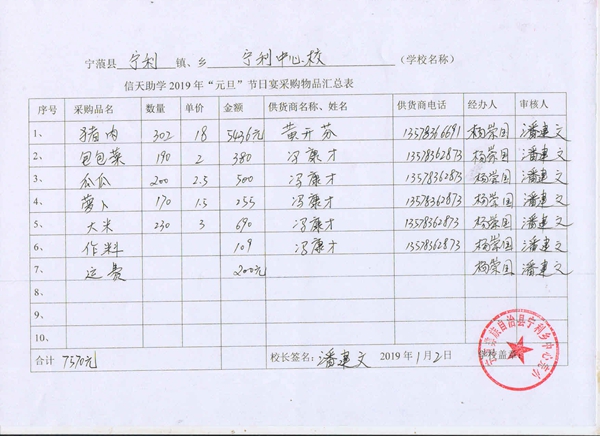 宁蒗县 宁利 镇、乡 宁利中心校 (学校名称)
信天助学 2019 年“元旦”节日宴采购物品汇总表
序号 采购品名 数量 单价 金额 供货商名称、姓名 供货商电话 经办人 审核人
1、 猪肉 302 18 5436元 黄开芬 13578366691 杨崇国 潘建文
2、 包包菜 190 2 380 冯康才 13578362873 杨崇国 潘建文
3、 瓜瓜 200 2.5 500 冯康才 13578362873 杨崇国 潘建文
4、 萝卜 170 1.5 255 冯康才 13578362873 杨崇国 潘建文
5、 大米 230 3 690 冯康才 13578362873 杨崇国 潘建文
6、 作料 109 冯康才 13578362873 杨崇国 潘建文
7、 运费 200元 杨崇国 潘建文
8、
9、
10、
合计 7570元 校长签名: 潘建文 2019 年 1 月 2 日 学校盖章:
族自治县宁利乡中心完小